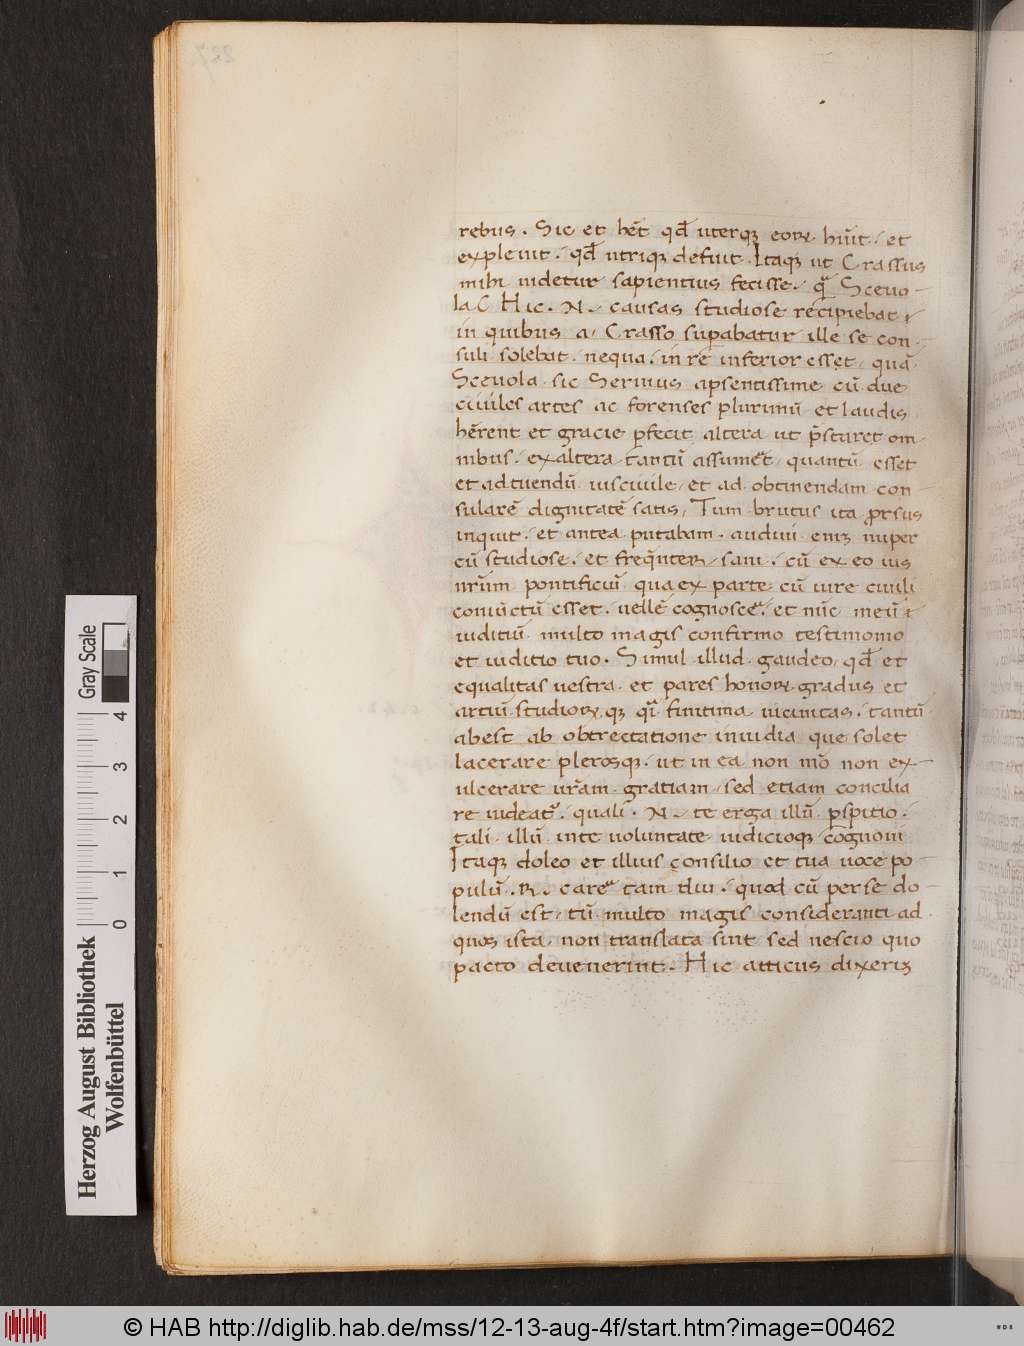 rebus. Sic et hēt qđ uterqꝫ eoꝝ hūit. et
expleuit. qđ utriqꝫ defuit. Itaqꝫ ut Crassus
mihi uidetur sapientius fecisse. qͣ Sceuo-
la C Hic. N. causas studiose recipiebat
in quibus a. Crasso supabatur ille se con
suli solebat. nequa. in rē inferior esset. quā
Sceuola. sic Seruius apsentissime cū due
ciuiles artes ac forenses plurimū et laudis
hērent et gracie pfecit altera ut p̄staret om
nibus. ex altera tantū assumet quantū esset
et ad tuendū ius ciuile et ad obtinendam con
sularē dignitatē satis. Tum brutus ita prorsus
inquit. et antea putabam. audiui enīꝫ nuper
cū studiose. et freq̄nter sani. cū ex eo ius
nr̄um pontificiū qua ex parte cū iure ciuili
coniūctū esset. uellē cognosce᷑. et nūc meū
iuditiū multo magis confirmo testimonio
et iuditio tuo. Simul illud gaudeo, qđ et
equalitas uestra et pares honoꝝ gradus et
artiū studioꝝ qꝫ qͣi finitima uicinitas. tantū
abest ab obtrectatione inuidia que solet
lacerare plerosqꝫ. ut in ea non mō non ex-
ulcerare ur̄am gratiam sed etiam concilia
re uideat᷑. quali. N. te erga illū pspitio.
tali illū in te uoluntate iudicioqꝫ cognoui
Itaqꝫ doleo et illius consilio et tua uoce po-
pulū. R. care᷑ tam diu. quod cū per se do-
lendū est, tū multo magis consideranti ad
quos ista non translata sint sed nescio quo
pacto deuenerint. Hic atticus dixeriꝫ
Gray Scale
4
3
2
1
0
Herzog August Bibliothek
Wolfenbüttel
© HAB http://diglib.hab.de/mss/12-13-aug-4f/start.htm?image=00462